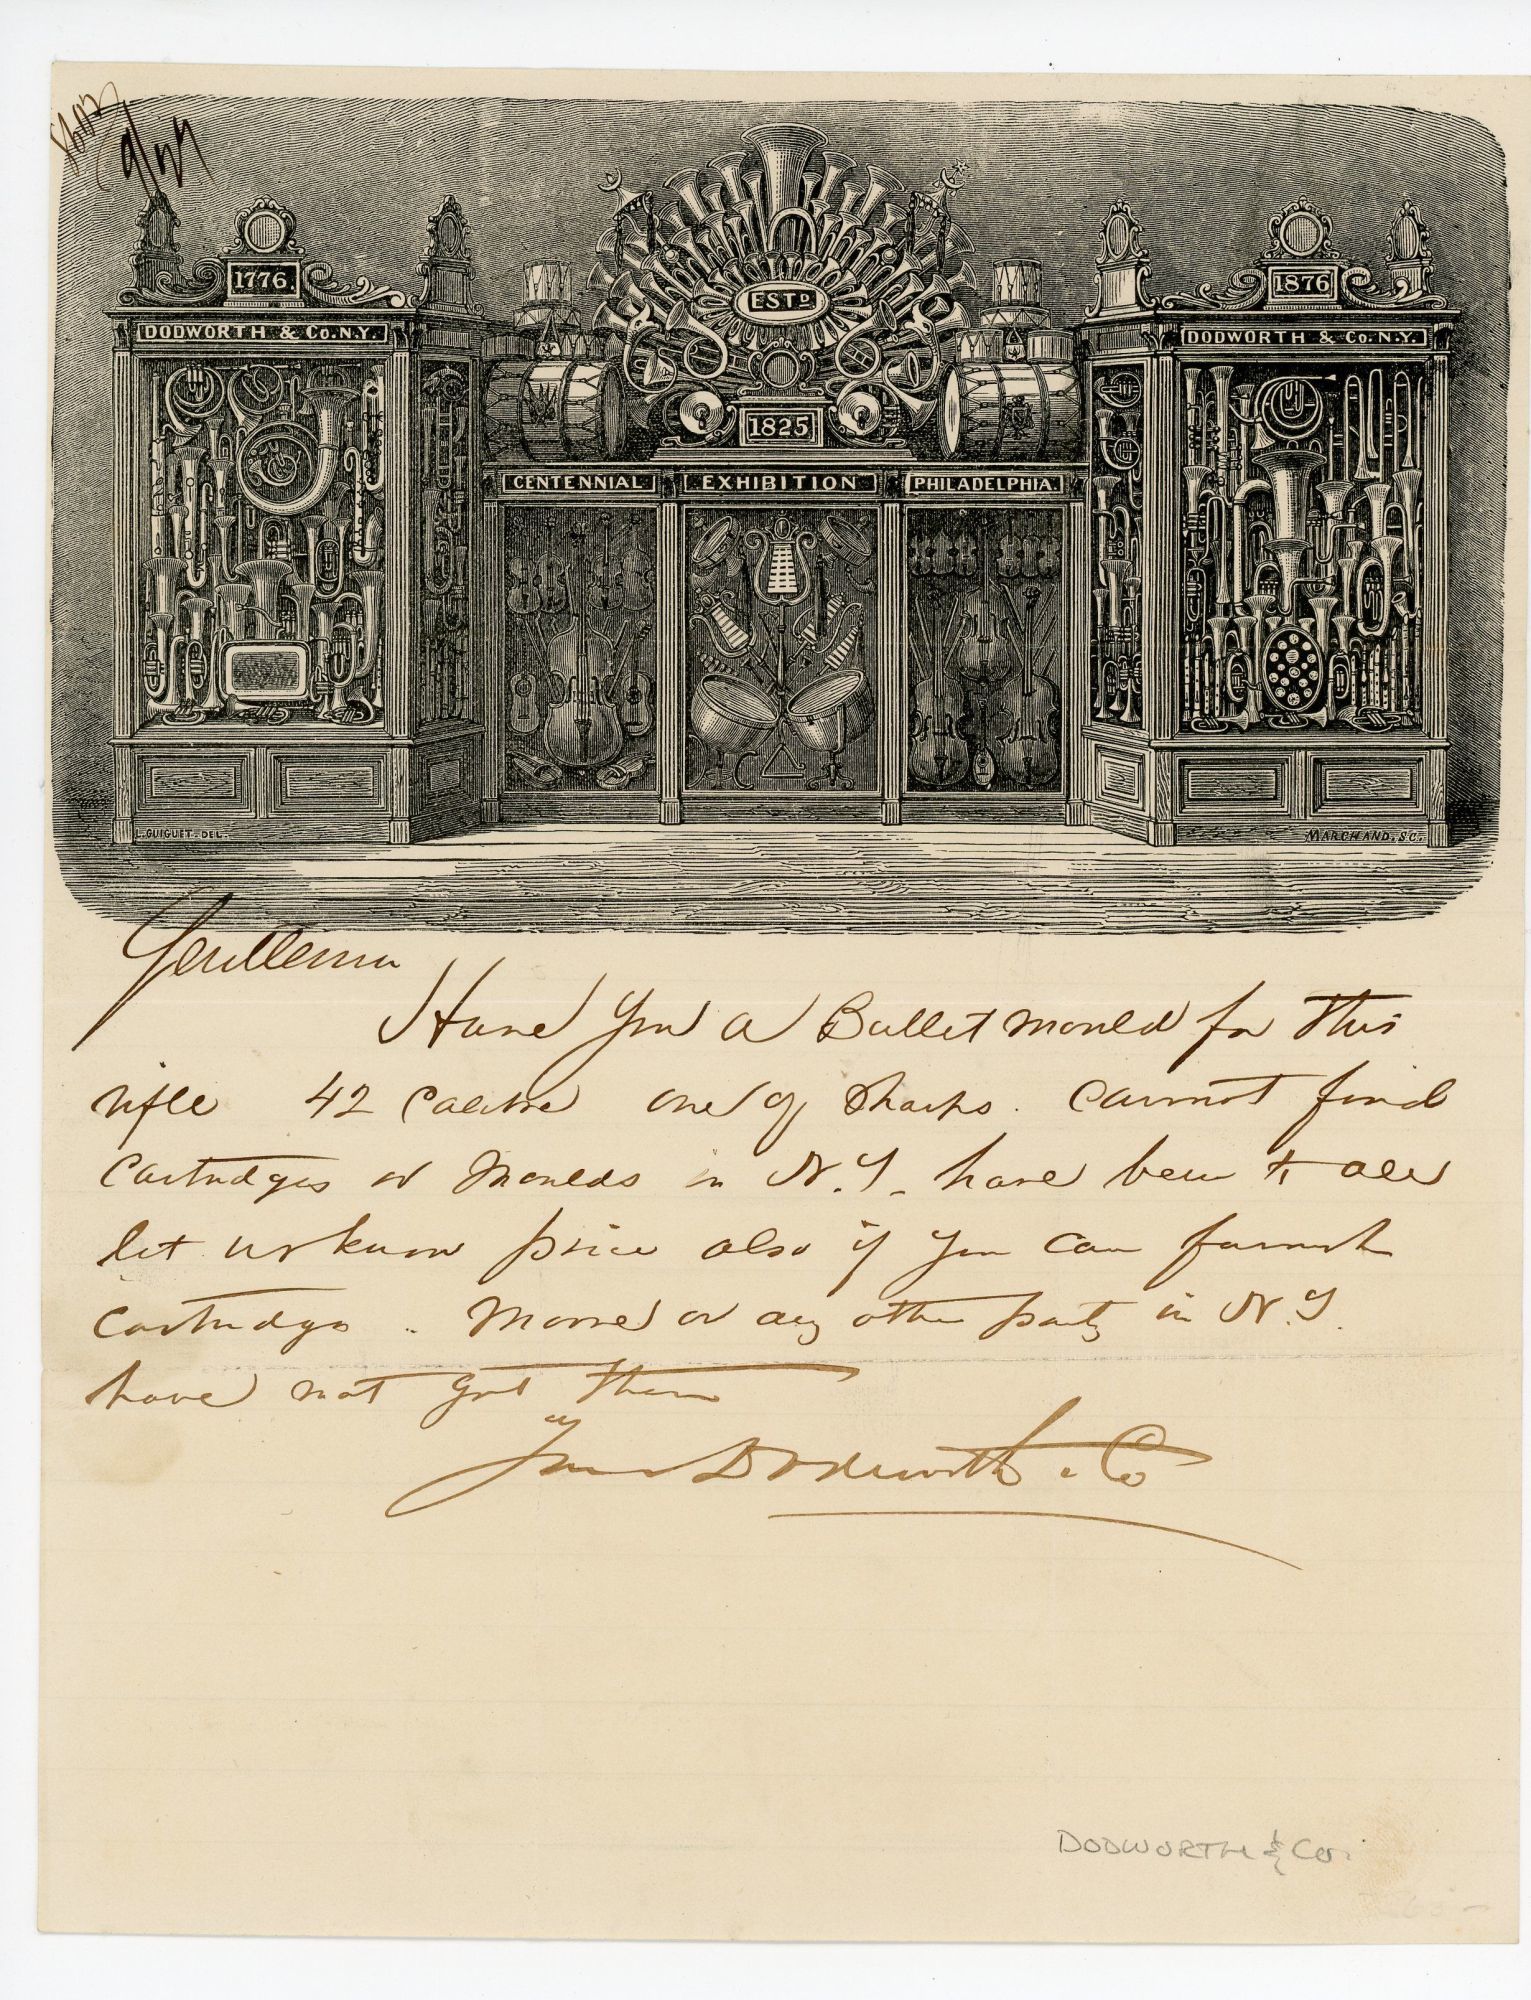 1776.
DODWORTH & Co. N.Y.
ESTD
1825
CENTENNIAL EXHIBITION PHILADELPHIA.
1876
DODWORTH & Co. N.Y.
L. GUIGUET-DEL.
MARCHAND, SC.
Gentlemen
Have you a Bullet mould for this
rifle 42 calibre one of Sharps. Cannot find
cartridges or Moulds in N.Y. have been to all
let us know price also if you can furnish
cartridge. or any other party in N.Y.
have not got them
Yours Dodworth & Co
DODWORTH & Co.